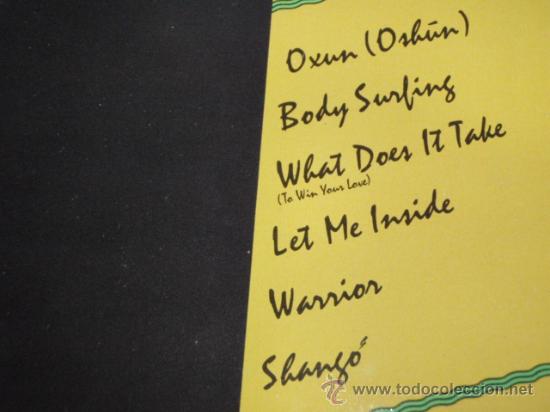 Oxun (Oshūn)
Body Surfing
What Does It Take
(To Win Your Love)
Let Me Inside
Warrior
Shangó
© www.todocoleccion.net